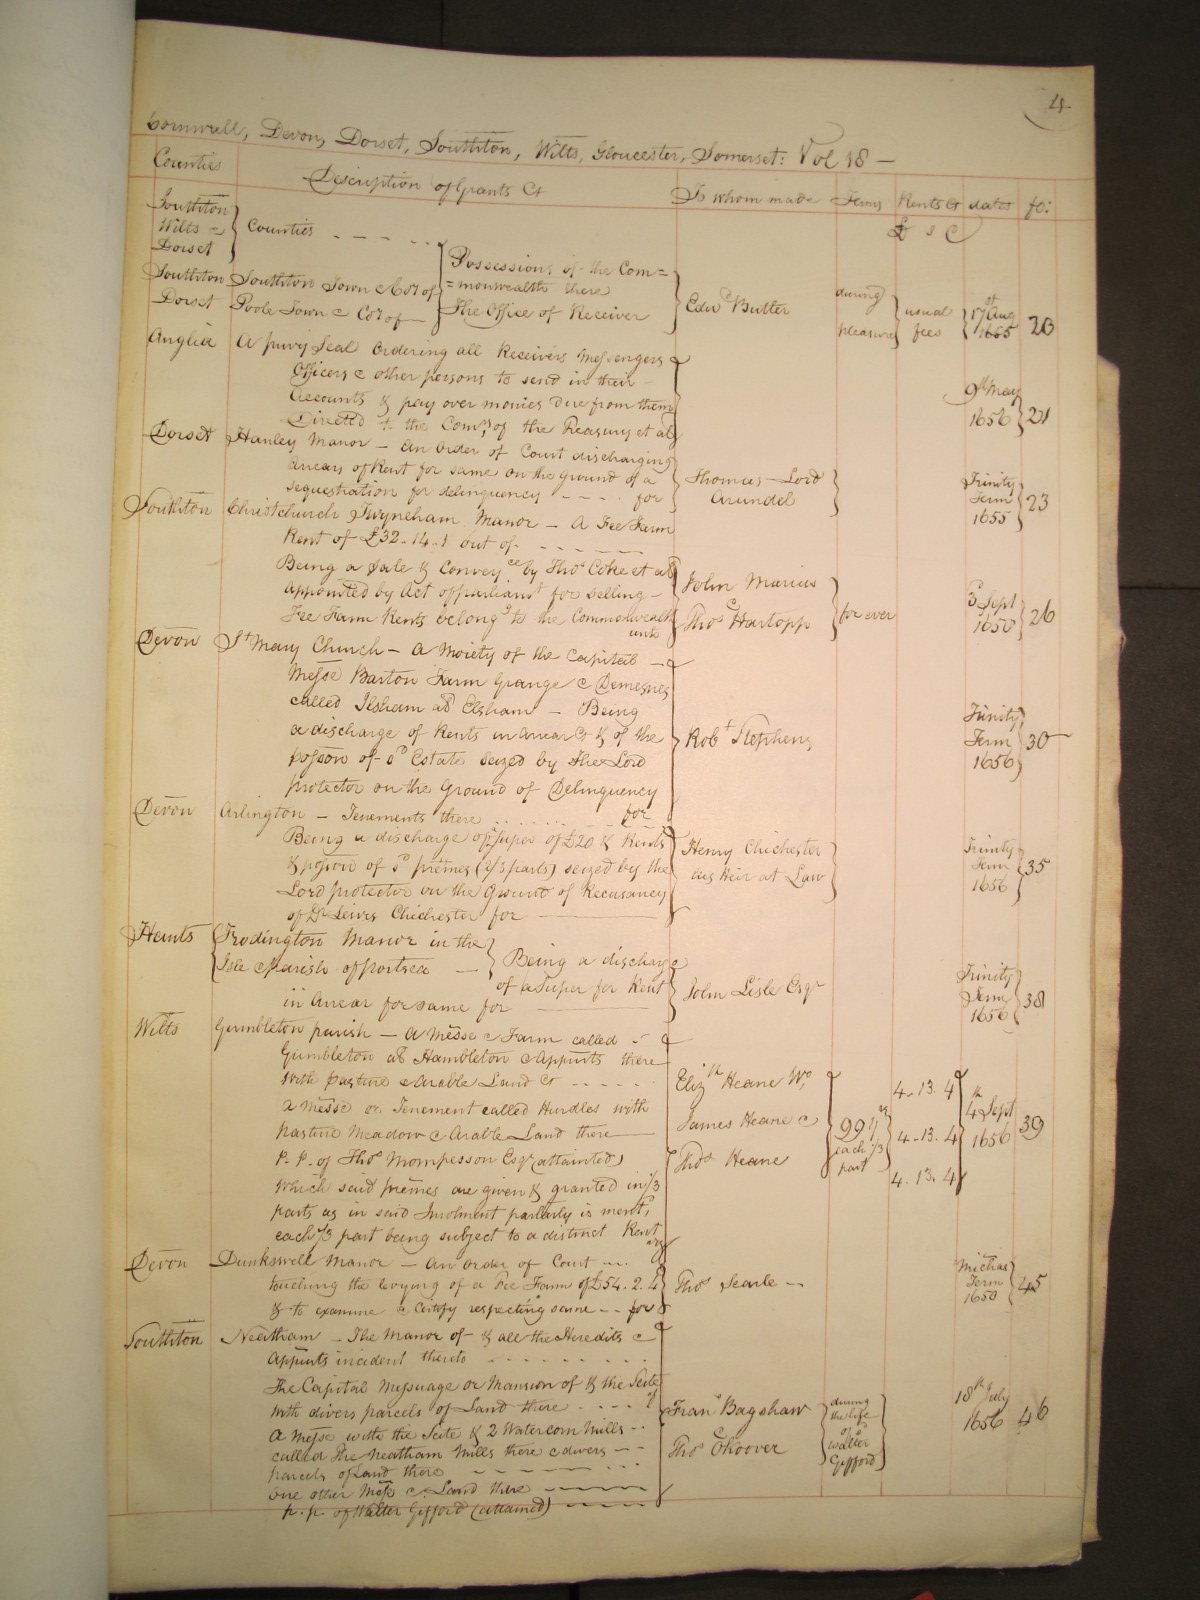 4
Cornwall, Devon, Dorset, Southton, Wilts, Gloucester, Somerset: Vol 18 —
Counties Description of Grants &c To whom made Terms Rents &c dates fo:
£ s d
Southton
Wilts &
Dorset } Counties - - - - -
Southton Southton Town & Coy of
Dorset Poole Town & Coy of
Possessions of the Com=
=monwealth there
The Office of Receiver
Edwd Butter
during
pleasure
usual
fees
17st Aug
1655
20
Anglia A privy Seal Ordering all Receivers Messengers
Officers & other persons to send in their -
Accounts & pay over monies due from them
Directed to the Comrs of the Treasury et als
9th May
1656
21
Dorset Hanley Manor - An Order of Court discharging
Arrears of Rent for same on the Ground of a
sequestration for delinquency - - - - for
Thomas - Lord
Arundel
Trinity
Term
1655
23
Southton Christchurch Twyneham Manor - A Fee Farm
Rent of £32-14-1 out of - - - - - -
Being a Sale & Conveyce by Thos Coke et als
Appointed by Act of parliamt for selling -
Fee Farm Rents belongg to the Commonwealth
unto
John Marius
&
Thos Hartopp
for ever
3 Sept
1650
26
Devon St Mary Church - A Moiety of the Capital -
Messe Barton Farm Grange & Demesnes
called Ilsham als Elsham - Being
a discharge of Rents in Arrear &c & of the
possion of sd Estate seized by The Lord
protector on the Ground of Delinquency
for
Robt Stephens
Trinity
Term
1656
30
Devon Arlington - Tenements there . . . . . .
Being a discharge of Super of £20 & Rents
& possion of sd premes (2/3 parts) seized by the
Lord protector on the Ground of Recusancy
of Dr Lewis Chichester for
Henry Chichester
his Heir at Law
Trinity
Term
1656
35
Hants Frodington Manor in the
Isle & Parish of Portsea - } Being a discharge
of a Super for Rent
in Arrear for same for
John Lisle Esqr
Trinity
Term
1656
38
Wilts Gumbleton parish - A Messe & Farm called -
Gumbleton als Hambleton & Appurts there
with pasture & Arable Land &c - - - - - -
A Messe or Tenement called Hurdles with
pasture Meadow & Arable Land there
P. P. of Thos Mompesson Esqr (attainted)
Which said premes are given & granted in 1/3
parts as in said Inrolment partarly is mentd
each 1/3 part being subject to a distinct Rent
viz
Elizth Heane Wo
James Heane &
Thos Heane
99 yrs
each 1/3
part
4. 13. 4
4. 13. 4
4. 13. 4
4th Sept
1656
39
Devon Dunkswell Manor - An Order of Court ...
touching the levying of a Fee Farm of £54. 2. 4
& to examine & Certify respecting same - - for
Thos Searle -
Michas
Term
1650
45
Southton Neatham - The Manor of - & all the Heredits &
Appurts incident thereto - - - - - - - -
The Capital Messuage or Mansion of & the Seite
with divers parcels of Land there - - - - of
A Messe with the Seite & 2 Watercorn Mills - -
called The Neatham Mills there & divers - -
parcels of Land there - - - - - - ...
One other Messe & Land there - - - - -
p. p. of Walter Gifford (attained) - - - - -
Frans Bagshaw
&
Thos Choover
during
the life
of
Walter
Gifford
18th July
1656
46